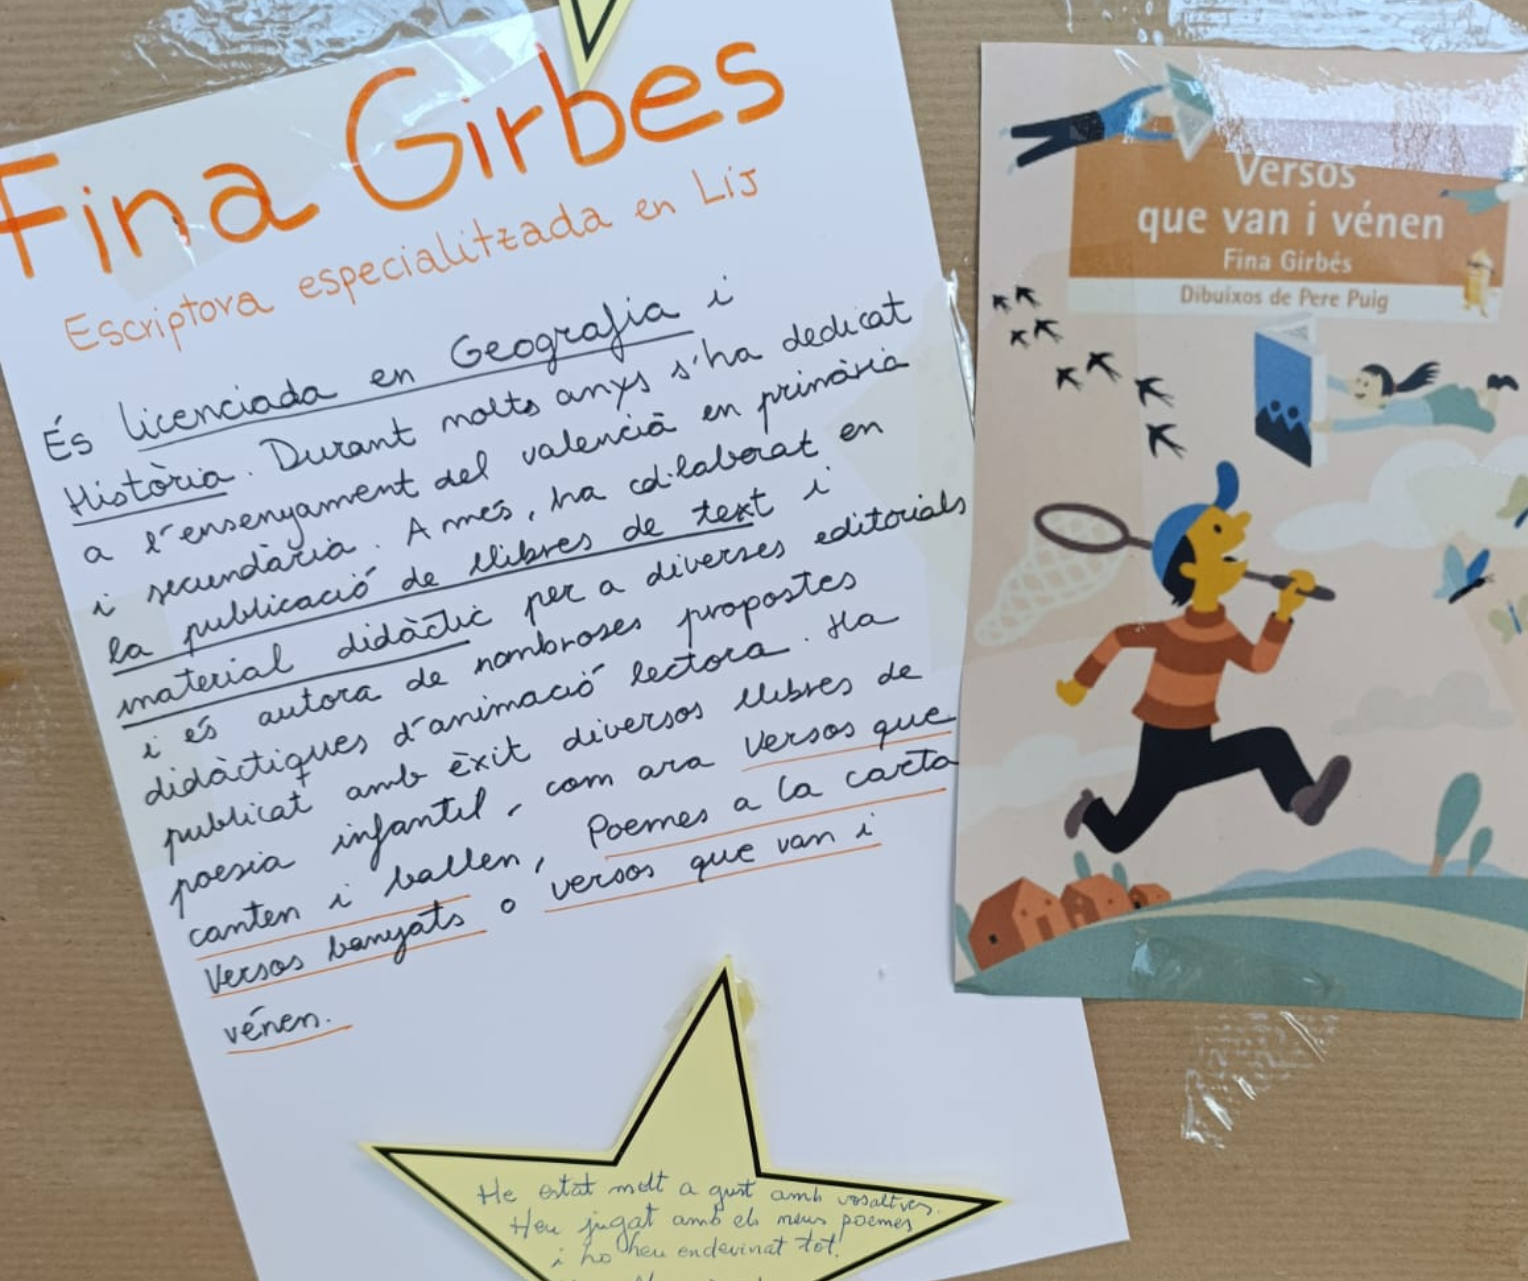 Fina Girbes
Escriptora especialitzada en LIJ
És licenciada en Geografia i
Història. Durant molts anys s'ha dedicat
a l'ensenyament del valencià en primària
i secundària. A més, ha col·laborat en
la publicació de llibres de text i
material didàctic per a diverses editorials
i és autora de nombroses propostes
didàctiques d'animació lectora. Ha
publicat amb èxit diversos llibres de
poesia infantil, com ara Versos que
canten i ballen, Poemes a la carta
Versos banyats o versos que van i
vénen.
He estat molt a gust amb vosaltres.
Heu jugat amb els meus poemes
i ho heu endevinat tot!
Versos
que van i vénen
Fina Girbés
Dibuixos de Pere Puig